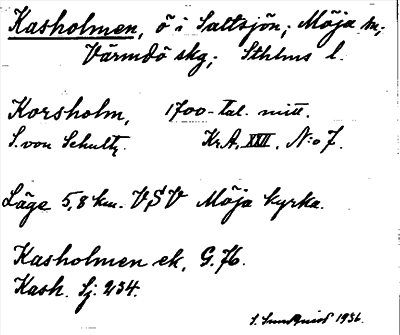 Kasholmen, ö i Saltsjön; Möja sn;
Värmdö skg; Sthlms l.
Korsholm, 1700-tal. mitt.
S. von Schultz. Kr.A. XXII. N:o 7.
Läge 5,8 km. VSV Möja kyrka.
Kasholmen ek. G. 76.
Kash. Sj. 234.
S. Sundquist 1936.